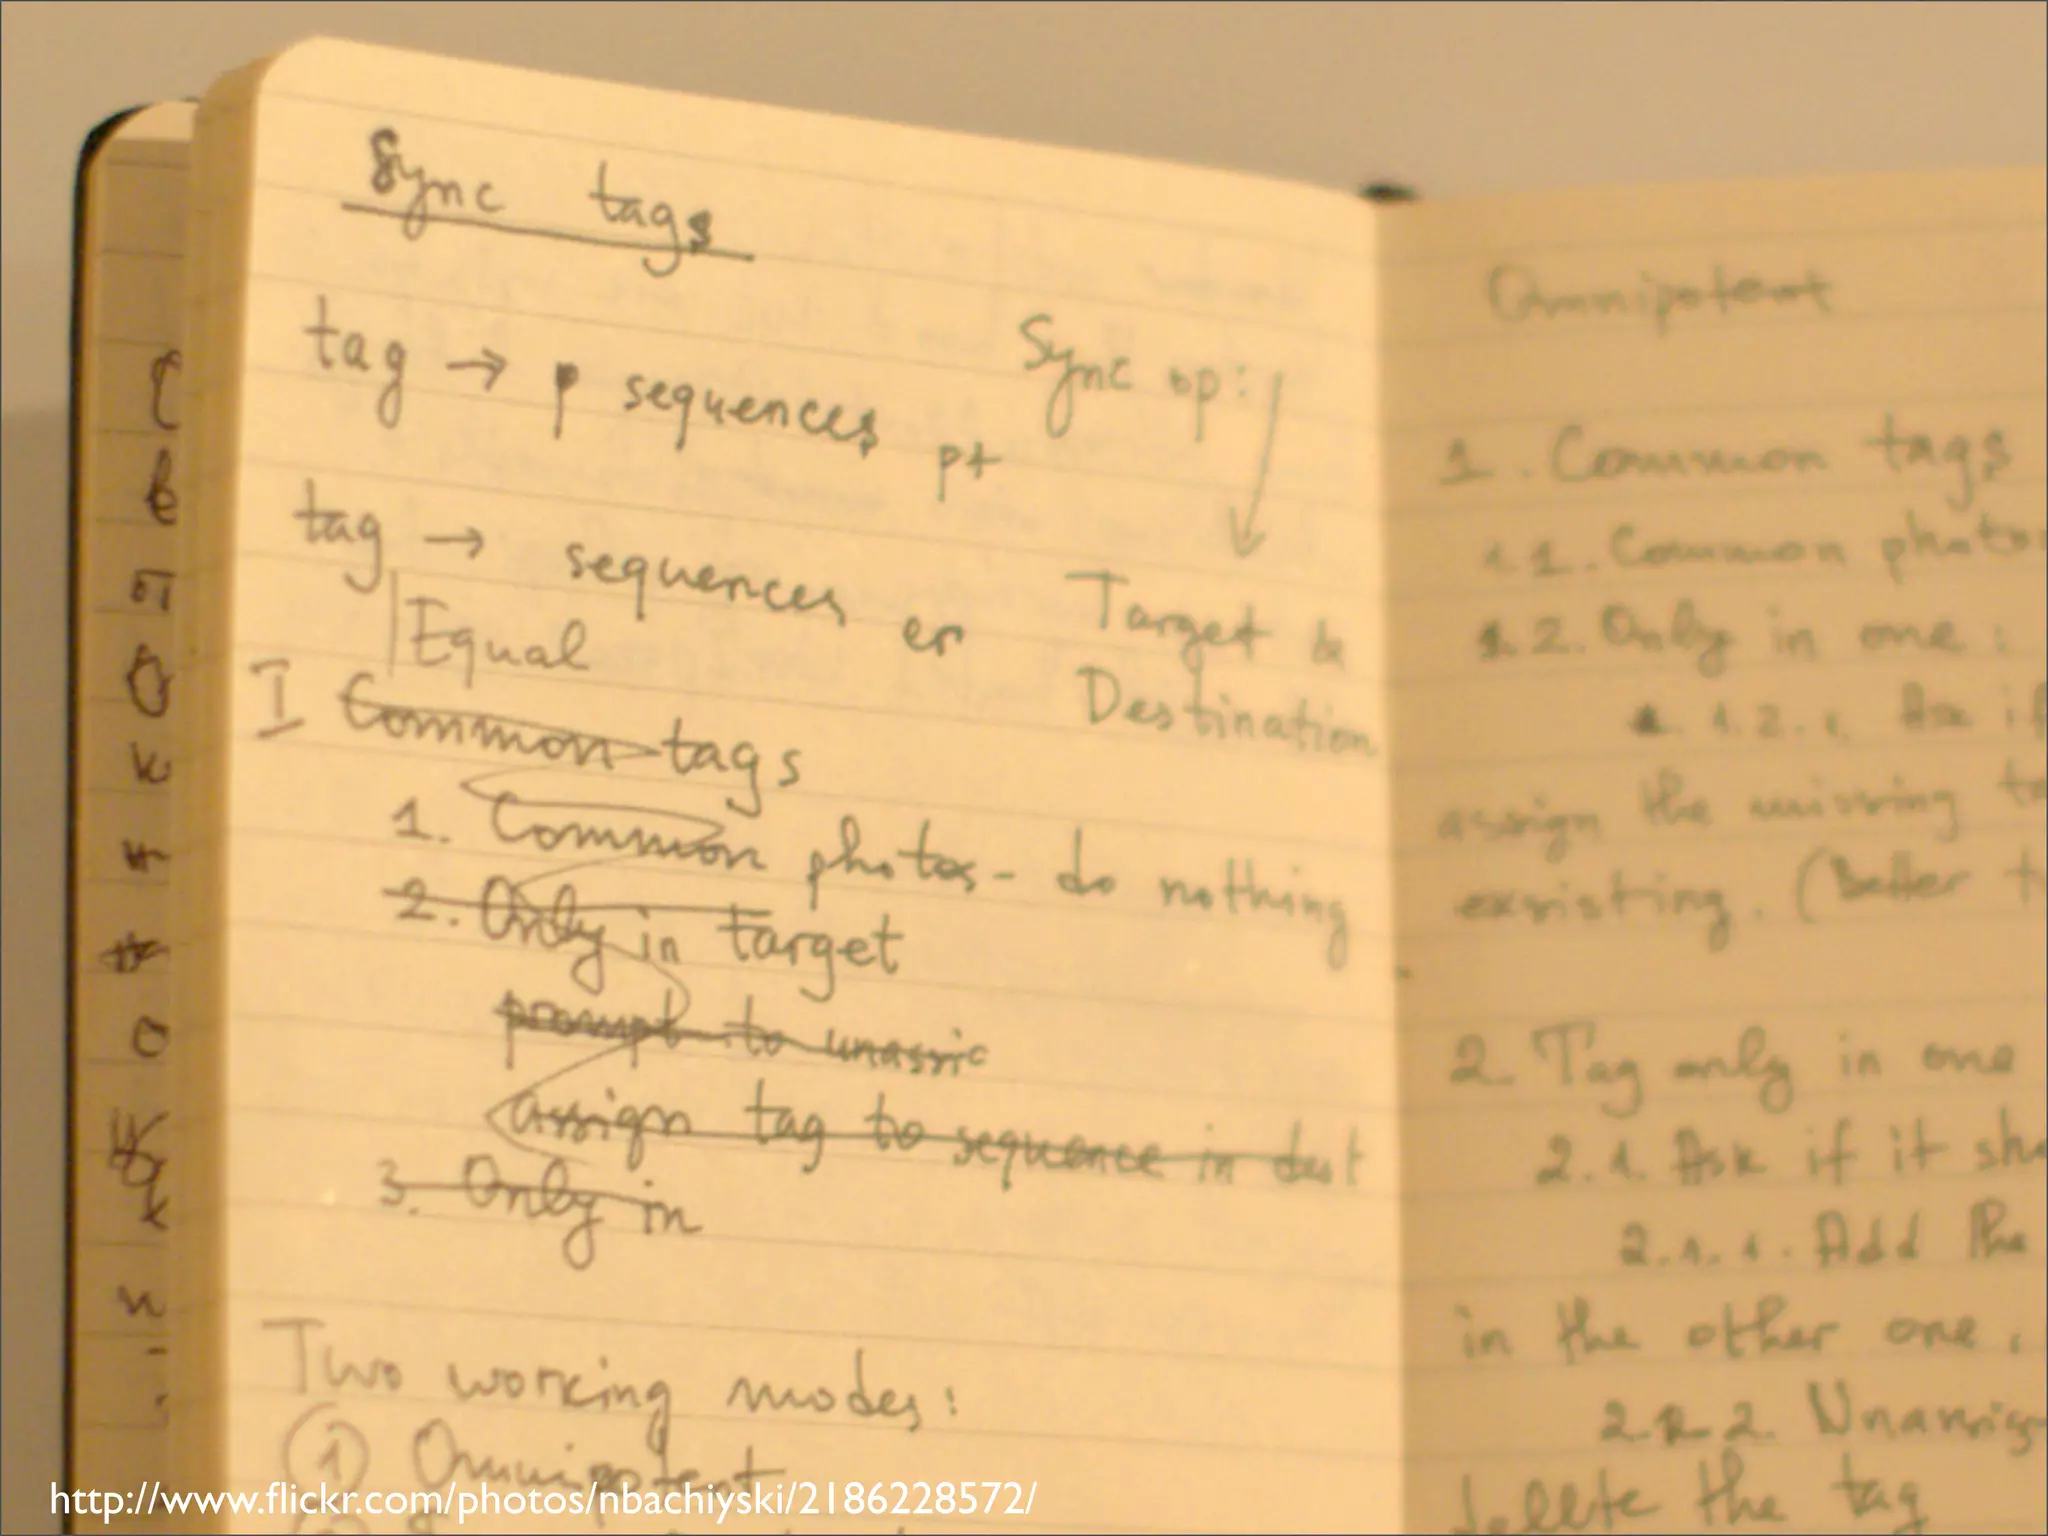 Sync tags
tag → p sequences pt
Sync op:
tag → sequences en
Target &
Destination
Equal
I Common tags
1. Common photos - do nothing
2. Only in target
prompt to unassic
assign tag to sequence in dest
3. Only in
Two working modes:
① Omnipotent
Omnipotent
1. Common tags
1.1. Common photos
1.2. Only in one:
1.2.1. Ask if
assign the missing
exsisting. (Better
2. Tag only in one
2.1. Ask if it
2.1.1. Add the
in the other one.
2.2.2. Unassign
dellete the tag
http://www.flickr.com/photos/nbachiyski/2186228572/